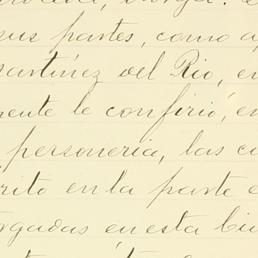 sus partes, como a
artínez del Rio, en
ente le confirió, en
personeria, las c
rito en la parte e
rgadas en esta Ciu